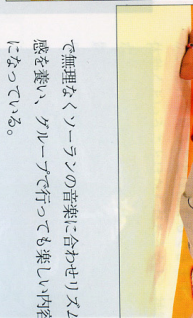 で無理なくソーランの音楽に合わせリズム
感を養い、グループで行っても楽しい内容
になっている。